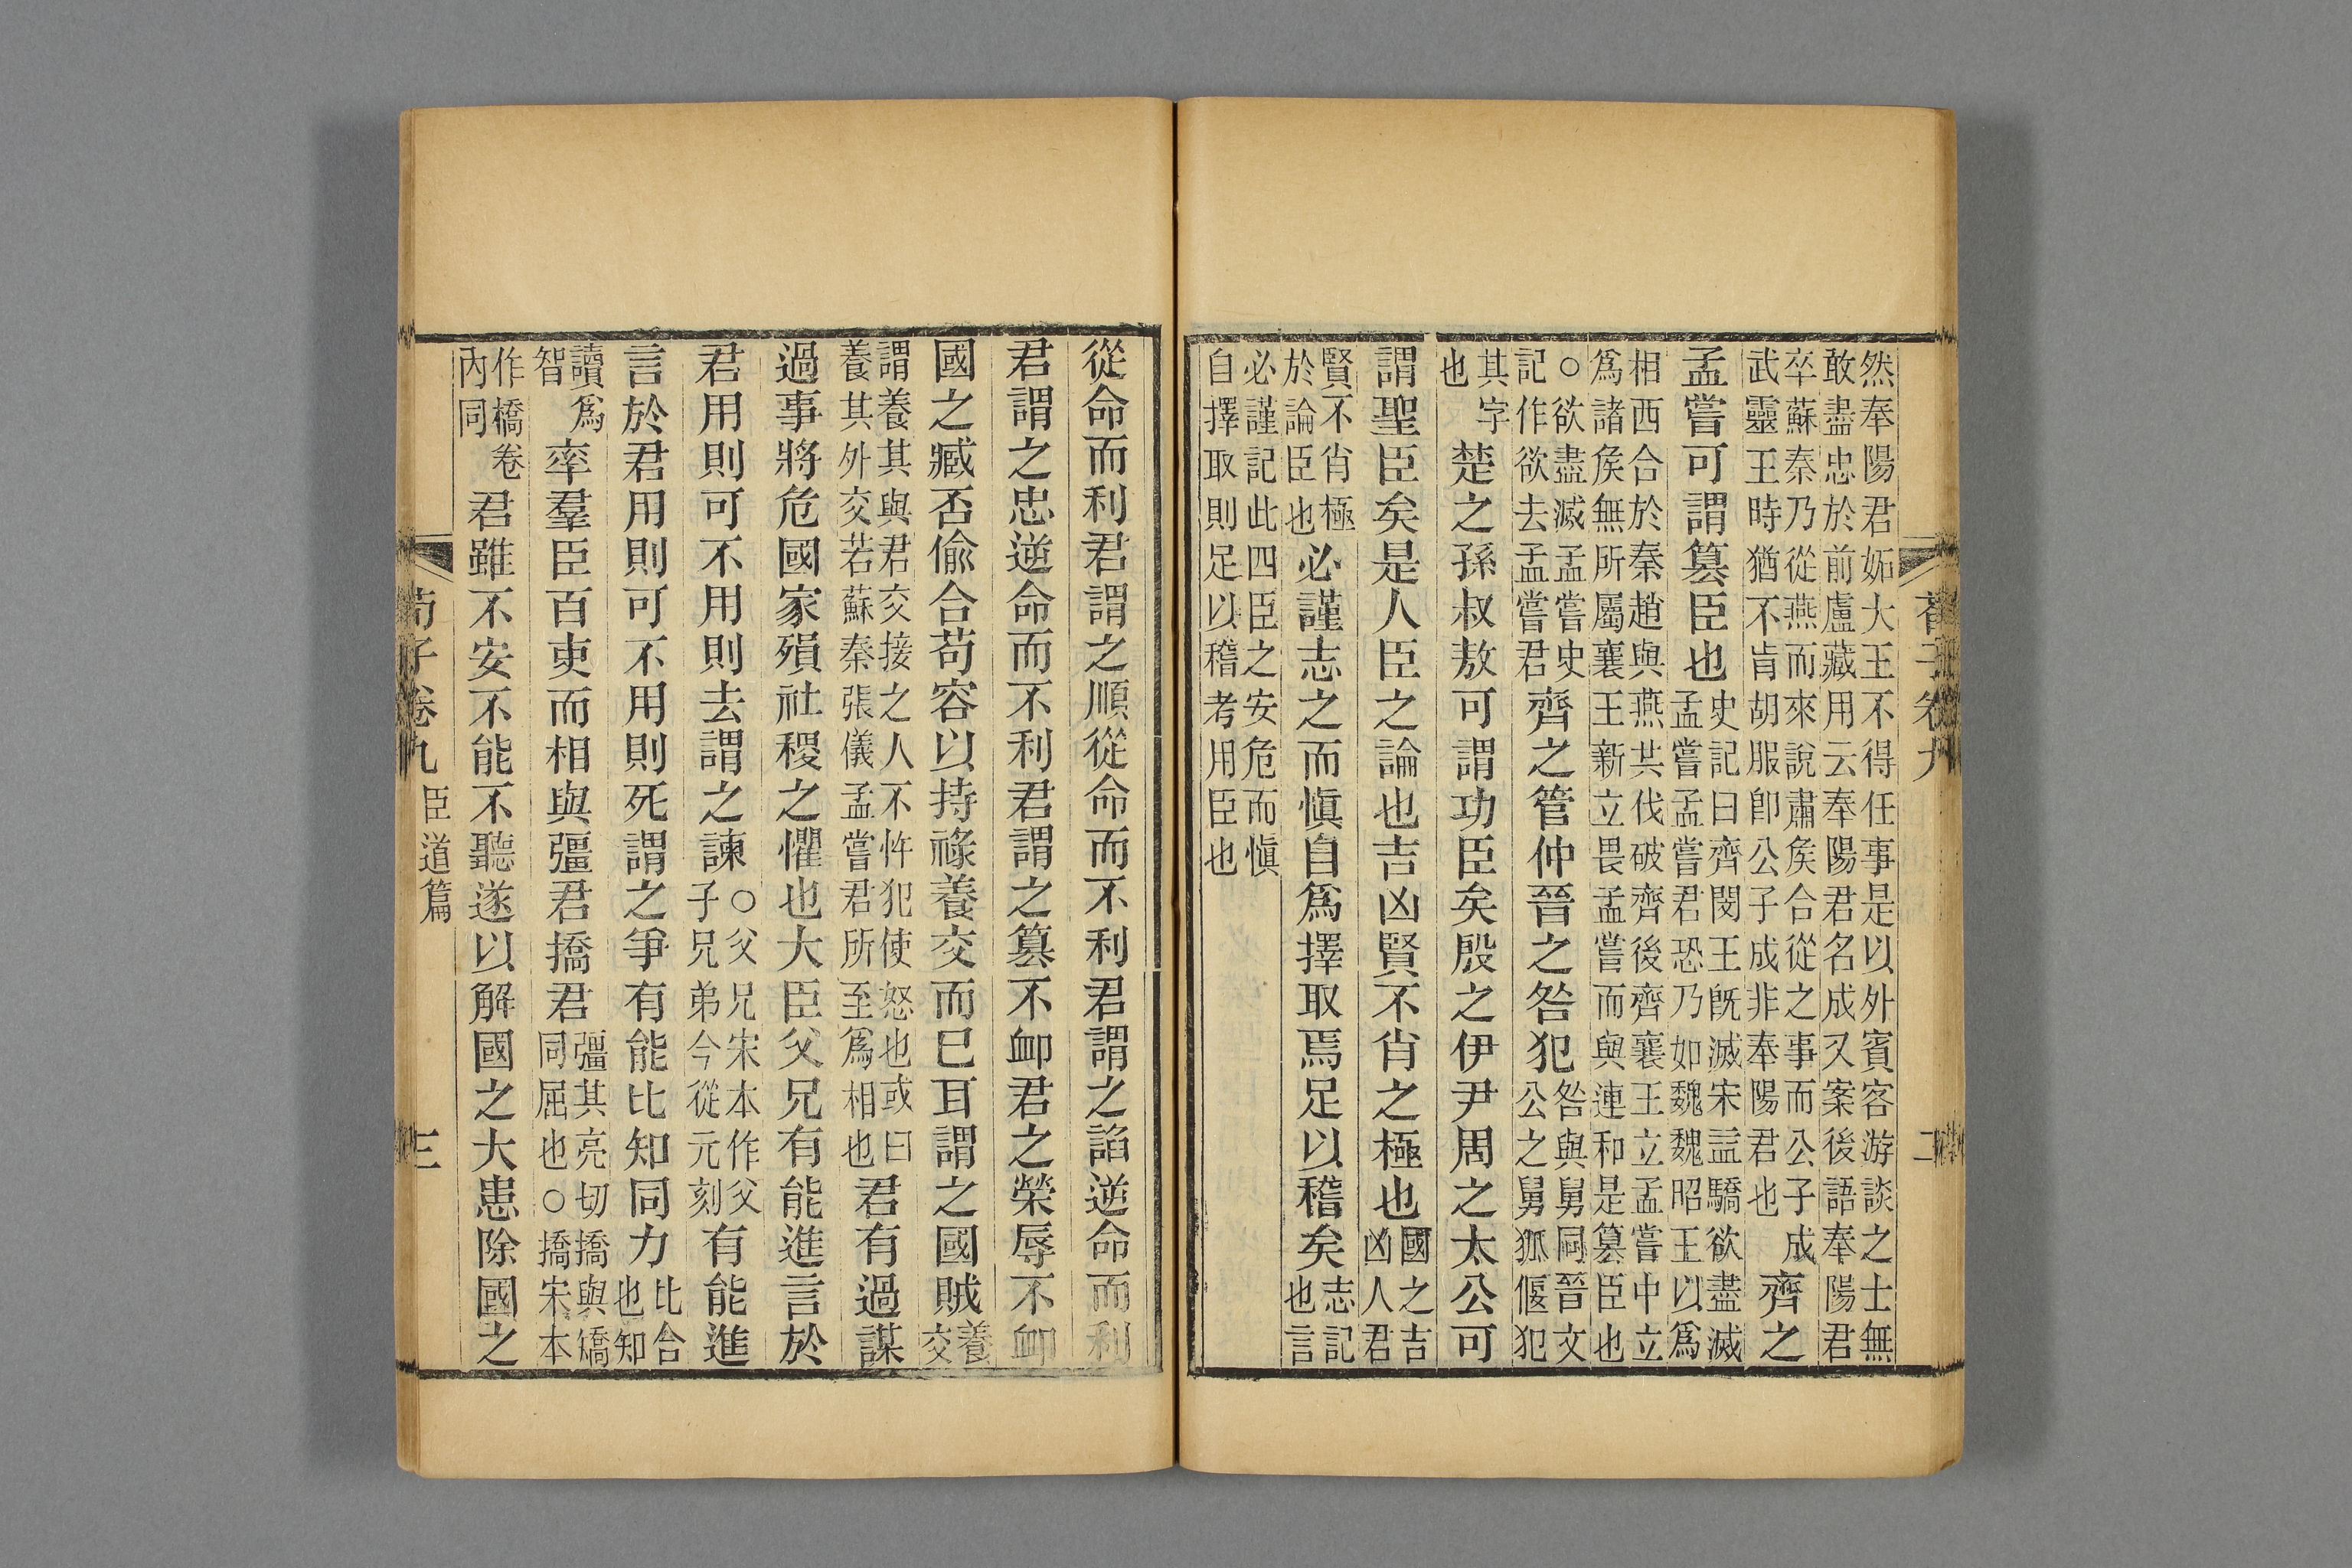 然奉陽君妬大王不得任事是以外賓客游談之士無
敢盡忠於前盧藏用云奉陽君名成又案後語奉陽君
卒蘇秦乃從燕而來說肅矦合從之事而公子成
武靈王時猶不肯胡服卽公子成非奉陽君也
齊之
孟嘗可謂篡臣也
史記曰齊閔王旣滅宋益驕欲盡滅
孟嘗孟嘗君恐乃如魏魏昭王以爲
相西合於秦趙與燕共伐破齊後齊襄王立孟嘗中立
爲諸矦無所屬襄王新立畏孟嘗而與連和是篡臣也
○欲盡滅孟嘗史
記作欲去孟嘗君
齊之管仲晉之咎犯
咎與舅同晉文
公之舅狐偃犯
其字
也
楚之孫叔敖可謂功臣矣殷之伊尹周之太公可
謂聖臣矣是人臣之論也吉凶賢不肖之極也
國之吉
凶人君
賢不肖極
於論臣也
必謹志之而愼自爲擇取焉足以稽矣
志記
也言
必謹記此四臣之安危而愼
自擇取則足以稽考用臣也
荀子卷九
二
從命而利君謂之順從命而不利君謂之諂逆命而利
君謂之忠逆命而不利君謂之篡不卹君之榮辱不卹
國之臧否偸合苟容以持祿養交而已耳謂之國賊
養
交
謂養其與君交接之人不忤犯使怒也或曰
養其外交若蘇秦張儀孟嘗君所至爲相也
君有過謀
過事將危國家殞社稷之懼也大臣父兄有能進言於
君用則可不用則去謂之諫
○父兄宋本作父
子兄弟今從元刻
有能進
言於君用則可不用則死謂之爭有能比知同力
比合
也知
讀爲
智
率羣臣百吏而相與彊君撟君
彊其亮切撟與矯
同屈也○撟宋本
作橋卷
內同
君雖不安不能不聽遂以解國之大患除國之
荀子卷九
臣道篇
三